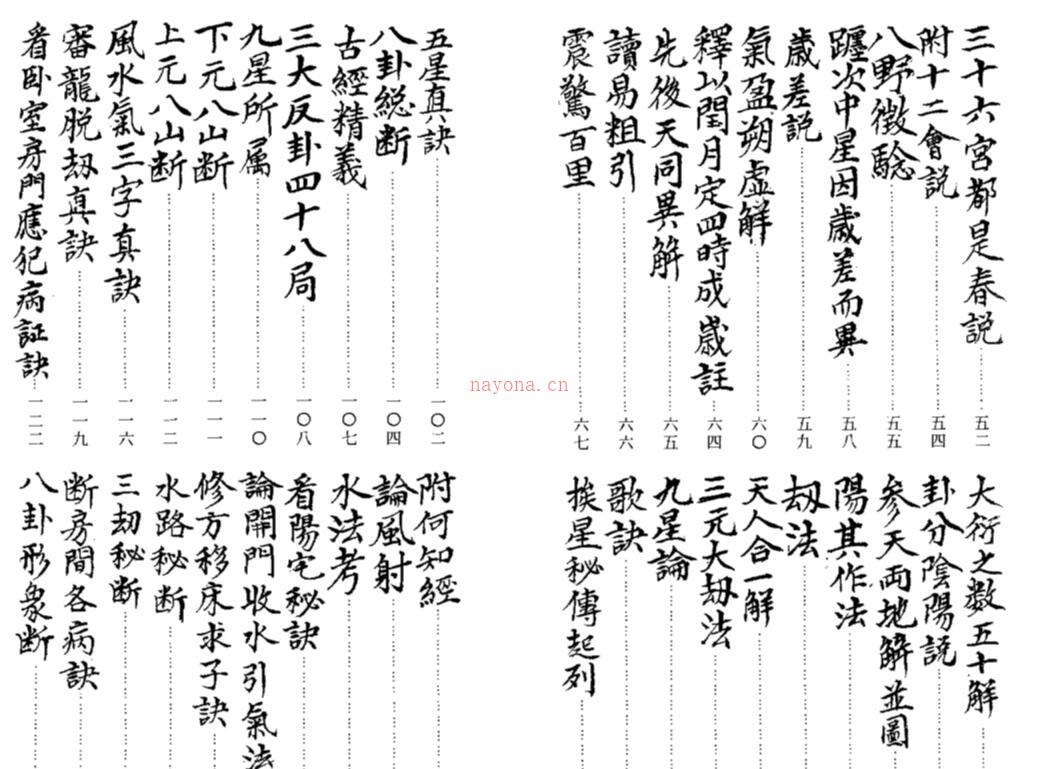 三十六宮都是春説 五二
附十二會説 五四
八野徴騐 五五
躔次中星因歲差而異 五八
歲差説 五九
氣盈朔虛解 六〇
釋以閏月定四時成歲註 六四
先後天同異解 六五
讀易粗引 六六
震驚百里 六七
大衍之数五十解
卦分陰陽説
参天両地解並圖
陽其作法
刼法
天人合一解
三元大刼法
九星論
歌訣
挨星秘傳起列
五星真訣 一〇二
八卦総断 一〇四
古經精義 一〇七
三大反卦四十八局 一〇八
九星所属 一一〇
下元八山断 一一一
上元八山断 一一二
風水氣三字真訣 一一六
審龍脱刼真訣 一一九
看卧室房門應犯病証訣 一二二
附何知經
論風射
水法考
看陽宅秘訣
論開門收水引氣法
修方移床求子訣
水路秘断
三刼秘断
断房間各病訣
八卦形象断
nayona.cn